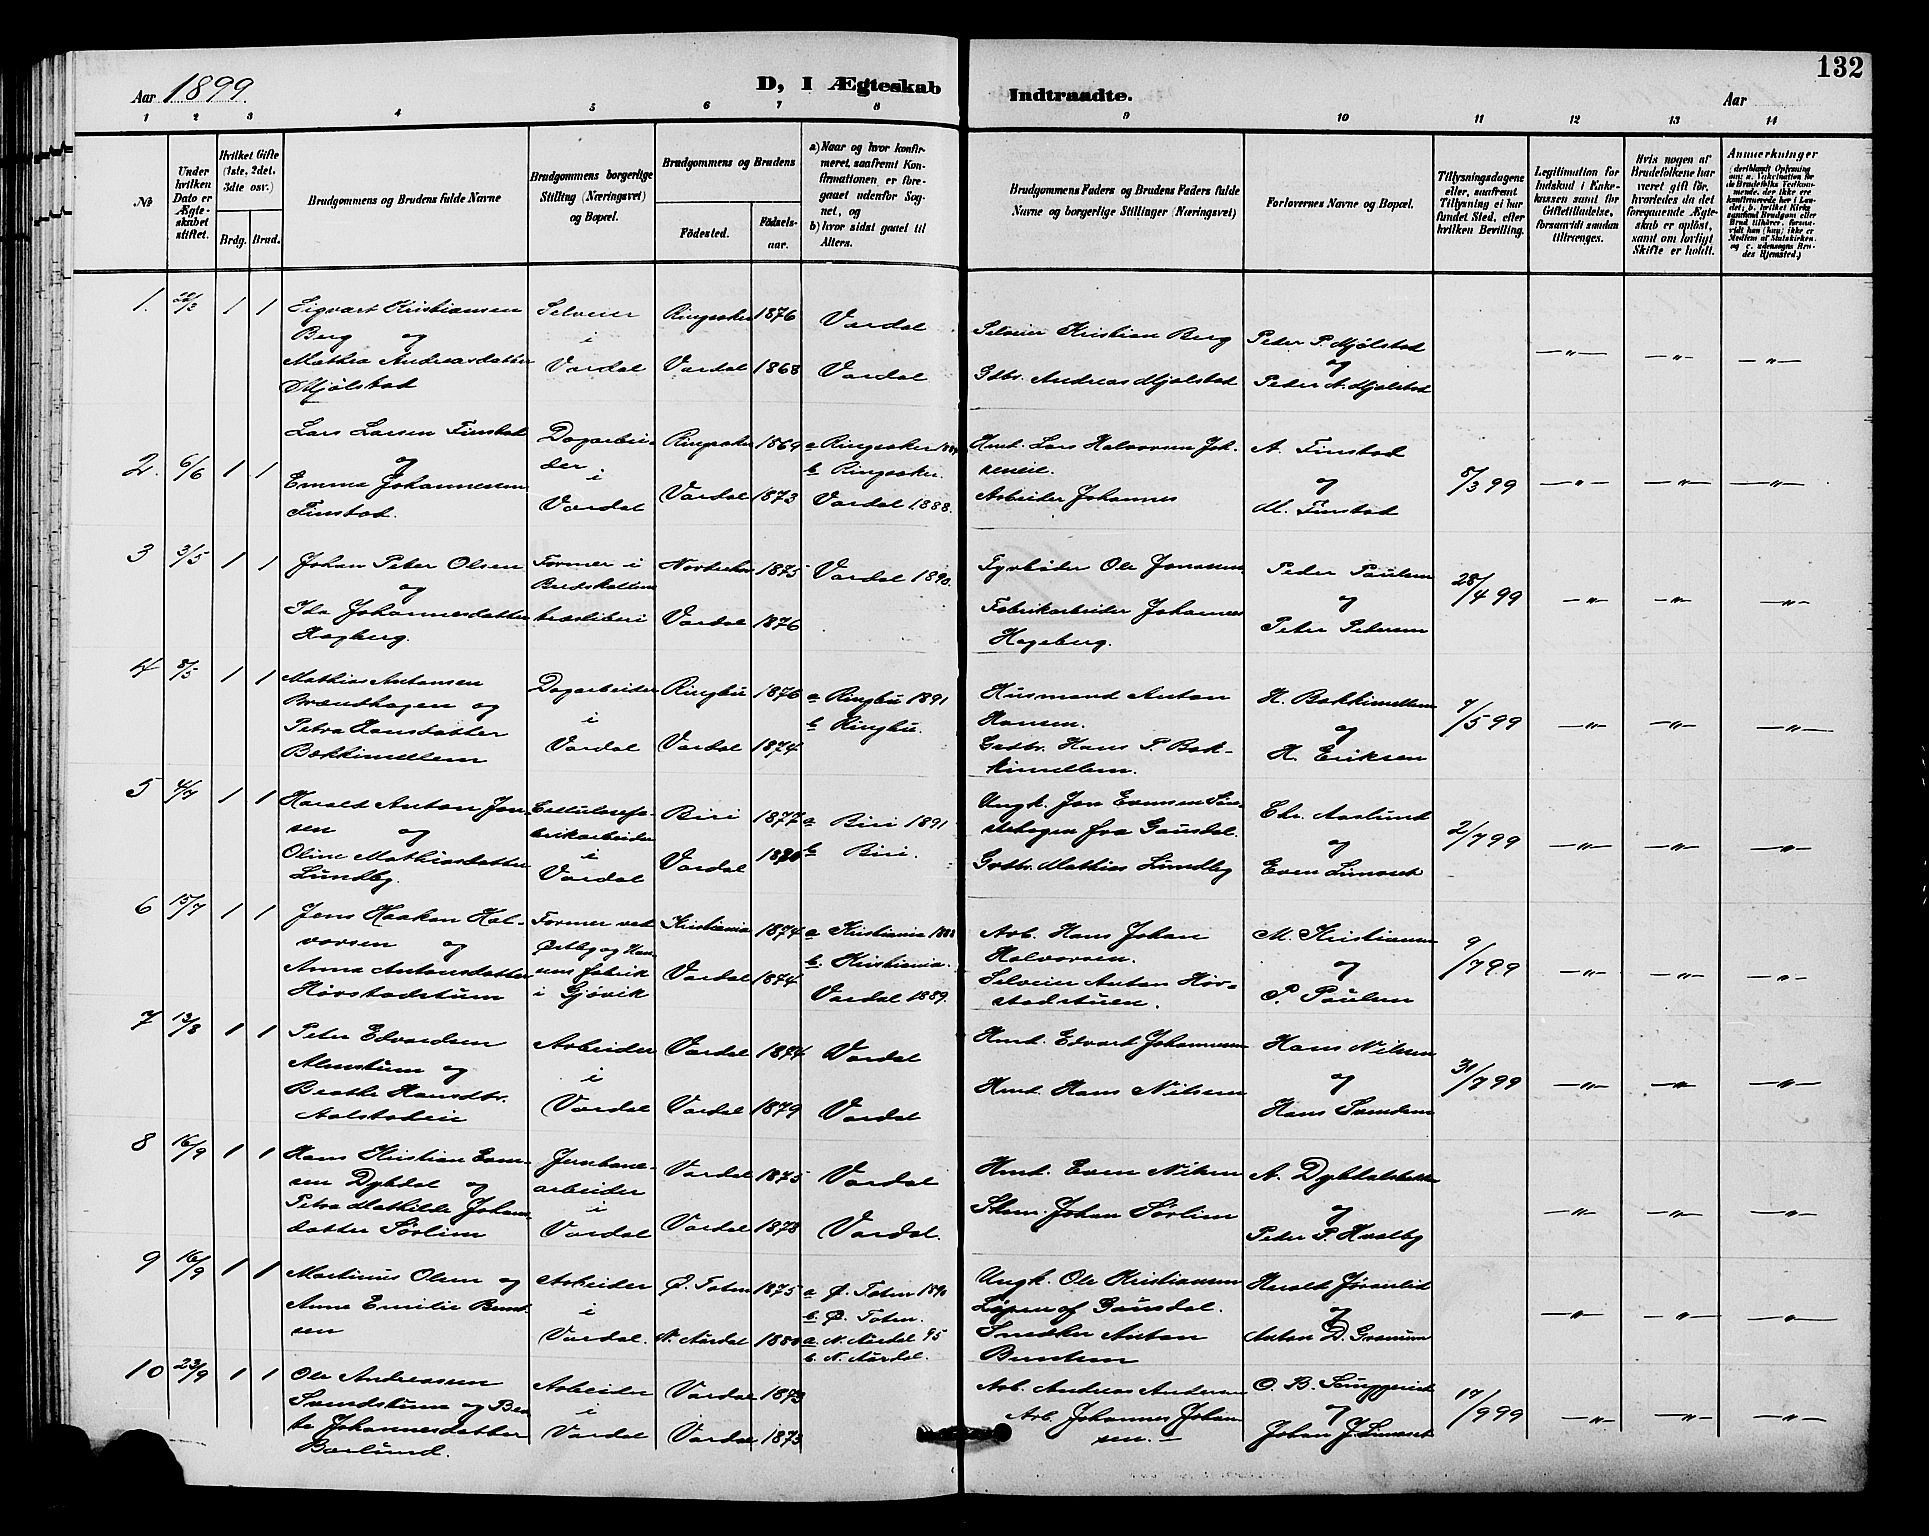 132
Aar 1899.
D, I Ægteskab Indtraadte.
Aar
1 2 3 4 5 6 7 8 9 10 11 12 13 14
No
Under hvilken Dato er Ægteskabet stiftet.
Hvilket Gifte (1ste, 2det, 3die osv.)
Brdg. Brud.
Brudgommens og Brudens fulde Navne
Brudgommens borgerlige Stilling (Næringsvei) og Bopæl.
Brudgommens og Brudens
Fødested. Fødselsaar.
a) Naar og hvor konfirmeret, saafremt Konfirmationen er foregaaet udenfor Sognet, og
b) hvor sidst gaaet til Alters.
Brudgommens Faders og Brudens Faders fulde Navne og borgerlige Stillinger (Næringsvei)
Forlovernes Navne og Bopæl.
Tillysningsdagene eller, saafremt Tillysning ei har fundet Sted, efter hvilken Bevilling.
Legitimation for Indskud i Enkekassen samt for Giftetilladelse, forsaavidt saadan tiltrænges.
Hvis nogen af Brudefolkene har været gift før, hvorledes da det foregaaende Ægteskab er opløst, samt om lovligt Skifte er holdt.
Anmerkninger
1. 22/3 1 1 Sigvart Kristiansen Berg og Mathea Andreasdatter Mjølstad
Selveier i Vardal
Ringsaker 1876 Vardal
Vardal 1868 Vardal
Selveier Kristian Berg
Gdbr. Andreas Mjølstad
Peder P. Mjølstad og Peder A. Mjølstad
—„— —„— —„—
2. 6/6 1 1 Lars Larsen Finstad og Emma Johannessen Finstad.
Dagarbeider i Vardal
Ringsaker 1869 a Ringsaker
b Ringsaker.
Vardal 1873 Vardal 1888.
Hmd. Lars Halvorsen
Arbeider Johannes
A. Finstad og M. Finstad
5/3 99 —„— —„— —„—
3 3/5 1 1 Johan Peter Olsen og Ida Johannesdatter Hagberg.
Former i
1875 Vardal 1890.
Vardal 1876
Fyrbøder Ole Jonassen
Fabrikarbeider Johannes Hageberg.
Peder Paulsen og Peter Petersen
28/4 99 —„— —„— —„—
4 8/5 1 1 Mathias Antonsen Brændhagen og Petra Hansdatter Bækkimellem
Dagarbeider i Vardal
Ringbu 1876 a Ringbu 1891
b Ringbu.
Vardal 1874
Husmand Anton Hansen.
Gdbr. Hans P. Bækkimellem.
H. Bækkimellem og H. Eriksen
7/5 99 —„— —„— —„—
5 4/7 1 1 Harald Anton Jonsen og Oline Mathiasdatter Lundby.
Cellulosefabrikarbeider i Vardal
Biri 1877 a Biri 1891
Vardal b Biri.
Ungk. Jon Evensen fra Gausdal.
Gdbr. Mathias Lundby
Chr. Aaslund og Even Limoset
2/7 99 —„— —„— —„—
6 15/7 1 1 Jens Haakon Halvorsen og Anna Antonsdatter Hørstadstuen
Former ved Østby og Hansens fabrik i Gjøvik
Kristiania 1874 a Kristiania 1888
b. Kristiania.
Vardal 1874 Vardal 1889.
Arb. Hans Johan Halvorsen.
Selveier Anton Hørstadstuen.
M. Kristiansen og P. Paulsen
9/7 99 —„— —„— —„—
7 13/8 1 1 Peter Edvardsen Almstuen og Beathe Hansdtr. Aalstadeie
Arbeider i Vardal
Vardal 1874 Vardal
Vardal 1879 Vardal
Hmd. Edvart Johannesen
Hmd. Hans Nilsen
Hans Nilsen og Hans Svendsen
31/7 99 —„— —„— —„—
8 16/9 1 1 Hans Kristian Evensen Dybdal og Petra Mathilde Johansdatter Sørlien
Jernbanearbeider i Vardal
Vardal 1875 Vardal
Vardal 1878 Vardal.
Hmd. Even Nilsen
Skom. Johan Sørlien
A. Dybdalsbakke og Peder P. Hvalby
—„— —„— —„—
9 16/9 1 1 Martinus Olsen og Anne Emilie Berntsen
Arbeider i Vardal.
Ø. Toten 1875 a Ø. Toten 1890
b. Ø. Toten.
N. Aurdal 1880 a. N. Aurdal 95
b. N. Aurdal.
Ungk. Ole Kristiansen Løpen af Gausdal.
Snedker Anton Berntsen
Harald Jøranlid og Anton D. Granum
—„— —„— —„—
10 23/9 1 1 Ole Andreassen Svendstuen og Beate Johannesdatter Berlund.
Arbeider i Vardal
Vardal 1873
Vardal 1873
Arb. Andreas Andersen
Arb. Johannes Johansen. —
O. B. og Johan J. Limoset
17/9 99 —„— —„— —„—